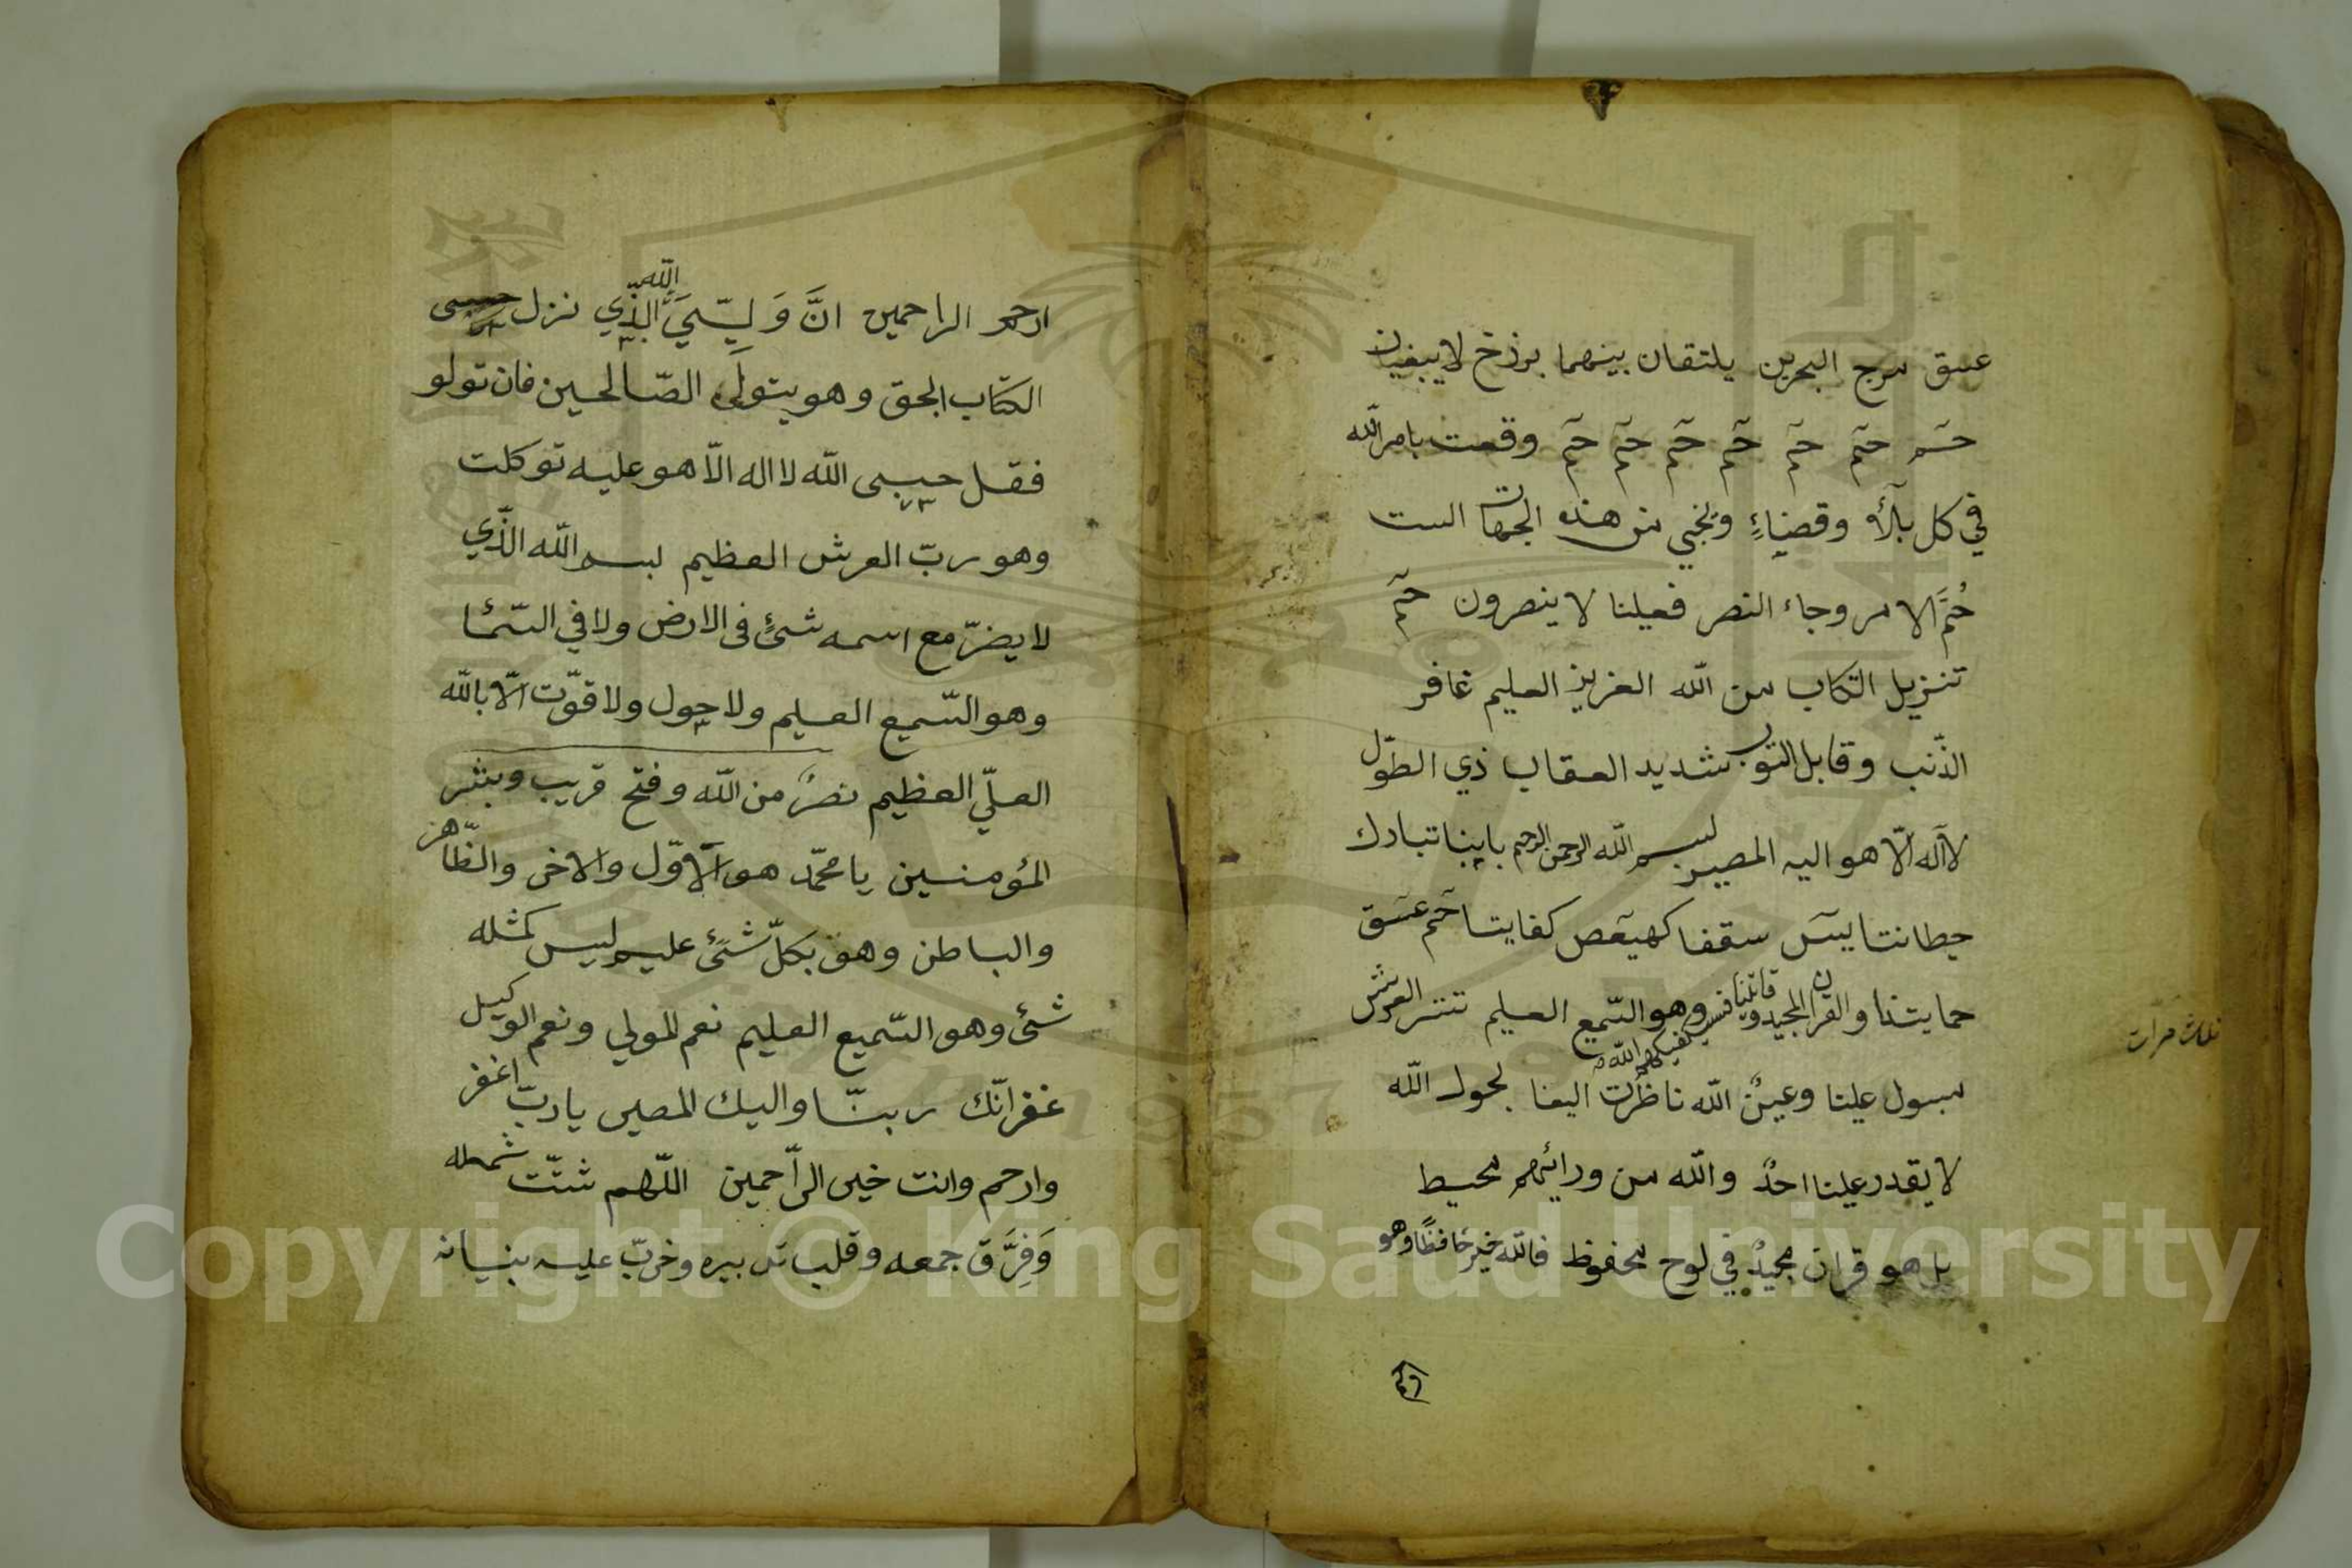 عسق مرج البحرين يلتقان بينهما برزخ لايبغيان
حم حم حم حم حم حم حم وقعت بامر الله
في كل بلاء وقضاء ونجني من هذه الجهات الست
حُمَّ الامر وجاء النصر فعلينا لا ينصرون حم
تنزيل الكتاب من الله العزيز العليم غافر
الذّنب وقابل التوب شديد العقاب ذي الطّول
لااله الّا هو اليه المصير بسم الله الرحمن الرحيم بابنا تبارك
حيطانتا يسَ سقفنا كهيعص كفايتنا حم عسق
حمايتنا والقران المجيد وقايتنا فسيكفيكهم الله وهو السّميع العليم ستر العرش
مسبول علينا وعينُ الله ناظرت الينا بحول الله
لا يقدر علينا احدٌ والله من ورائهم محيط
بل هو قران مجيدٌ في لوح محفوظ فالله خير حافظًا وهو
ثلاث مرات
ارحم الراحمين انَّ وَلِيِّيَ الله الّذي نزل
الكتاب بالحق وهو يتولى الصّالحين فان تولو
فقل حسبى الله لا اله الّا هو عليه توكلت
وهو ربّ العرش العظيم بسم الله الّذي
لا يضرّ مع اسمه شئٌ فى الارض ولا في السّمٔا
وهو السّميع العليم ولا حول ولا قوّت الّا بالله
العليّ العظيم نصرٌ من الله وفتح قريب وبشر
المؤمنين يا محمّد هو الاوّل والاخر والظّاهر
والباطن وهو بكلّ شئ عليم ليس كمثله
شئ وهو السّميع العليم نعم المولي ونعم الوكيل
غفرانّك ربنّا واليك المصير يا ربّ اغفر
وارحم وانت خير الرّاحمين اللّهم شتّت شمله
وَفِرَّق جمعه وقلب تدبيره وخربّ عليه بنيانه